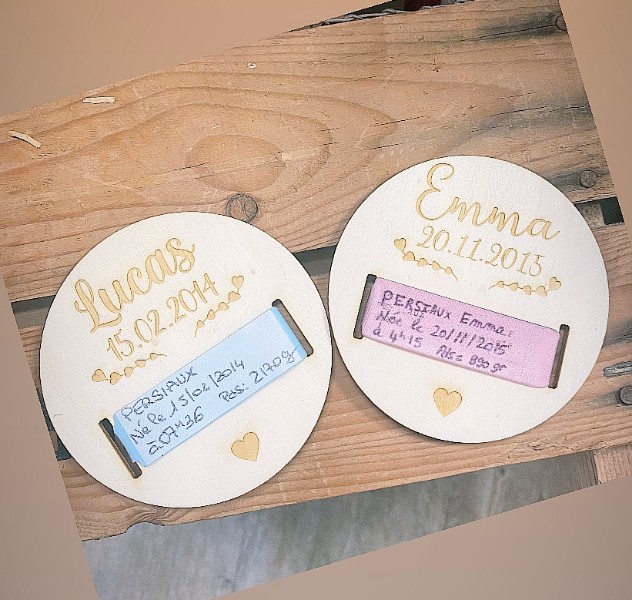 Lucas
15.02.2014
PERSIAUX
Né le 15/02/2014
à 07H36 Pds: 2170g
Emma
20.11.2015
PERSIAUX Emma
Née le 20/11/2015
à 4h15 Pds= 890gr